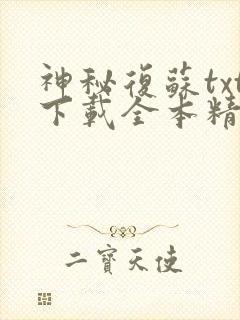 神秘復蘇txt
下載全本精
二寶天使